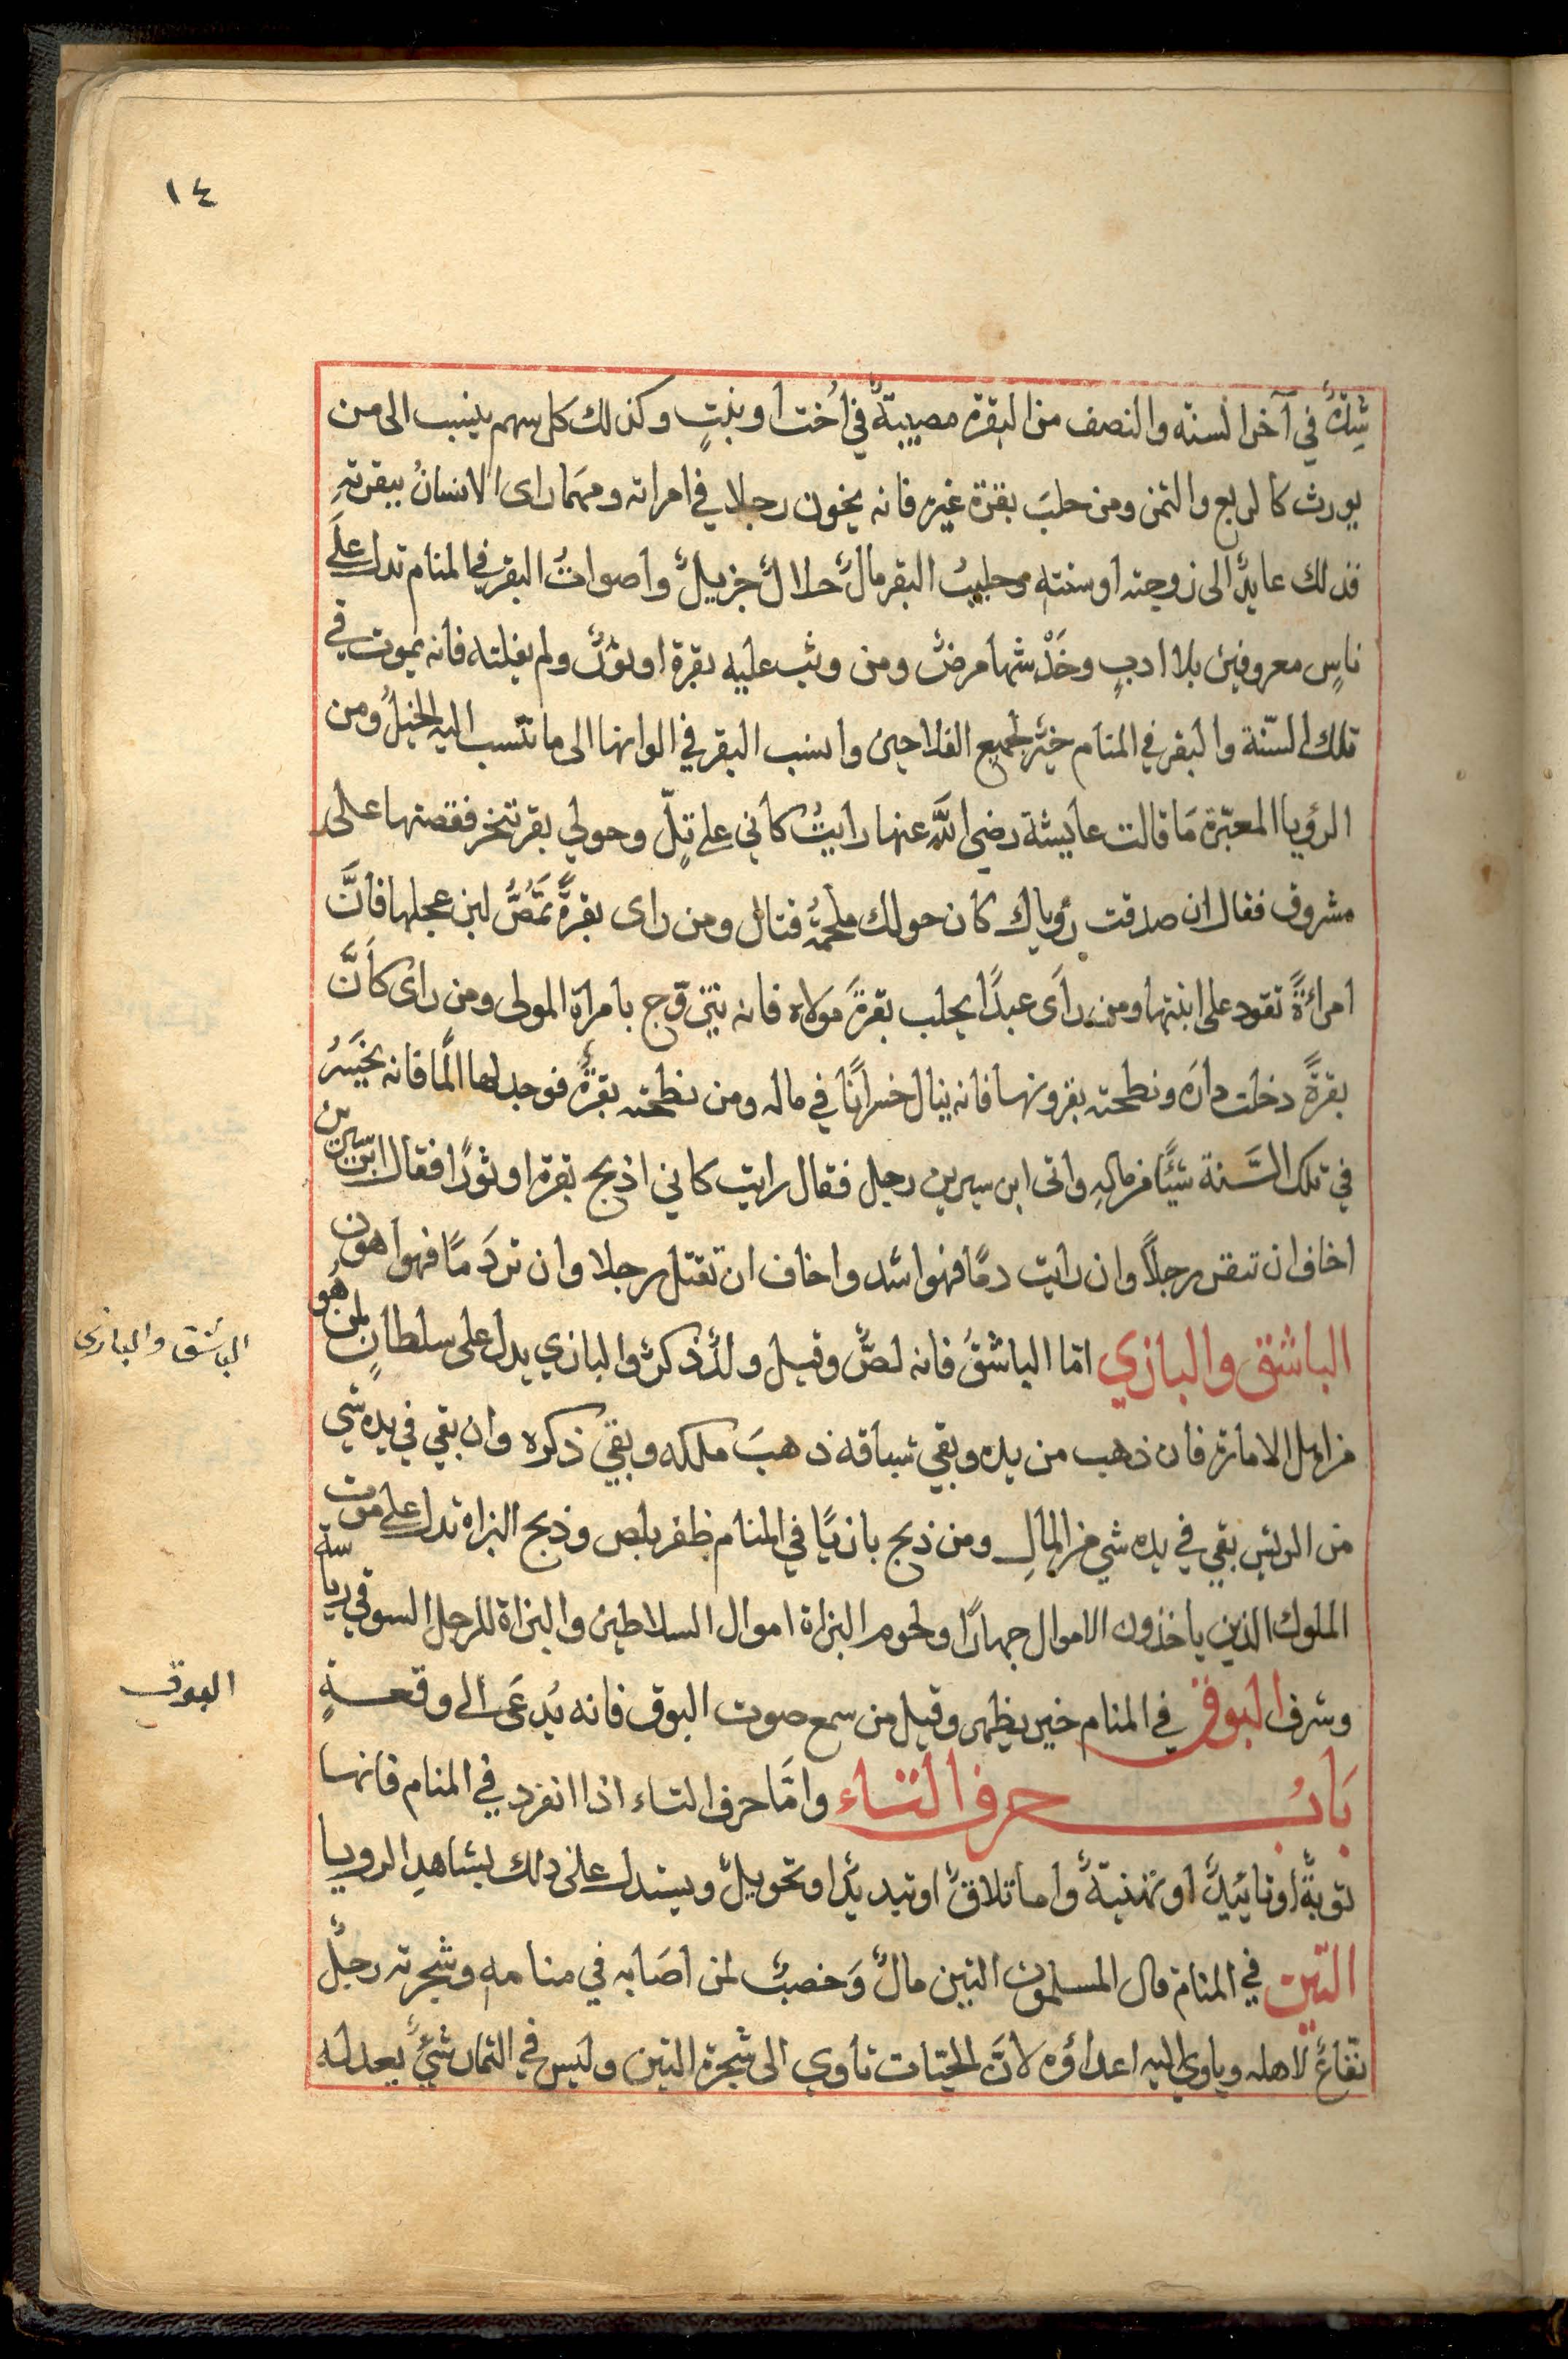 ١٤
شدةٌ في آخر السنه والنصف من البقرة مصيبةٌ في اُخت او بنتٍ وكذلك كل سهم ينسب الى من
يورث كالربع والثمن ومن حلبَ بقرة غيره فانه يخون رجلا في امراته ومهَما راى الانسانُ ببقرتهِ
فذلك عايدٌ الى زوجته او سنته وحليبُ البقر مالٌ حلالٌ جزيلٌ واصواتُ البقر في المنام تدل علَى
ناسٍ معروفين بلا ادبٍ وخَدْشها مرضٌ ومن وثب عليه بقرة او ثورٌ ولم يفلته فانه يموت في
تلك السّنة والبقر في المنام خيرٌ لجميع الفلاحين وانسب البقر في الوانها الى ما تنسب اليه الخيلُ ومن
الرؤيا المعبّرة مَا قالت عايشة رضي اللَّه عنها رايتُ كاني على تلّ وحولي بقر تنحر فقصتها على
مشروق فقال ان صدقت رؤياك كان حولك ملحمةُ قتال ومن راى بقرةً تمَصُّ لبن عجلها فانَّ
امرائةً تقود على ابنتها ومن راَى عبدًا يحلب بقرةَ مولاه فانه يتزوج بامراة المولى ومن راى كاَنَّ
بقرةً دخلت دارَه ونطحته بقرونها فانه ينال خسرانًا في ماله ومن نطحته بقرةٌ فوجد لها الَمًا فانه يخسَرُ
في تلك السَّنة شئًا من مالهِ واتى ابن سيرين رجل فقال رايت كاني اذبح بقرة او ثورًا فقال ابن سيرين
اخاف ان تبقر رجلًا وان رايت دمًا فهوا شد واخاف ان تقتل رجلا وان لم تر دَمًا فهوا هون
الباشق والبازي امّا الباشقُ فانه لصٌّ وقيل ولدٌ ذكرٌ والبازي يدل على سلطانٍ لمن هُو
الباشق والبازي
من اهل الامارة فان ذهب من يده وبقي سباقه ذهبَ ملكه وبقيَ ذكره وان بقي في يده شي
من الريش بقي في يده شي من المالِ ومن ذبح بازيًا في المنام ظفر بلص وذبح البزاه تدل على موت
الملوك الذين ياخذون الاموال جهارًا ولحوم البزاة اموال السلاطين والبزاة للرجل السوقي رياسة
وشرف البوق في المنام خير يظهر وقيل من سمع صوت البوق فانه يُدعَى الى وقعةٍ
البوق
بَابُ حرف التاء وامَّا حرف التاء اذا انفرد في المنام فانها
توبةٌ او تائيدٌ او تهنيةٌ واما تلاقٌ او تبديدٌ او تحويلٌ ويستدل على ذلك بشاهدِ الرويا
التين في المنام قال المسلمون التين مالٌ وَخصبٌ لمن اصَابه في منامه وشجرته رجلٌ
نفّاعٌ لاهله وياوي اليه اعداؤه لانَّ الحيّات تاوي الى شجرة التين وليس في الثمار شيٌ يعدله